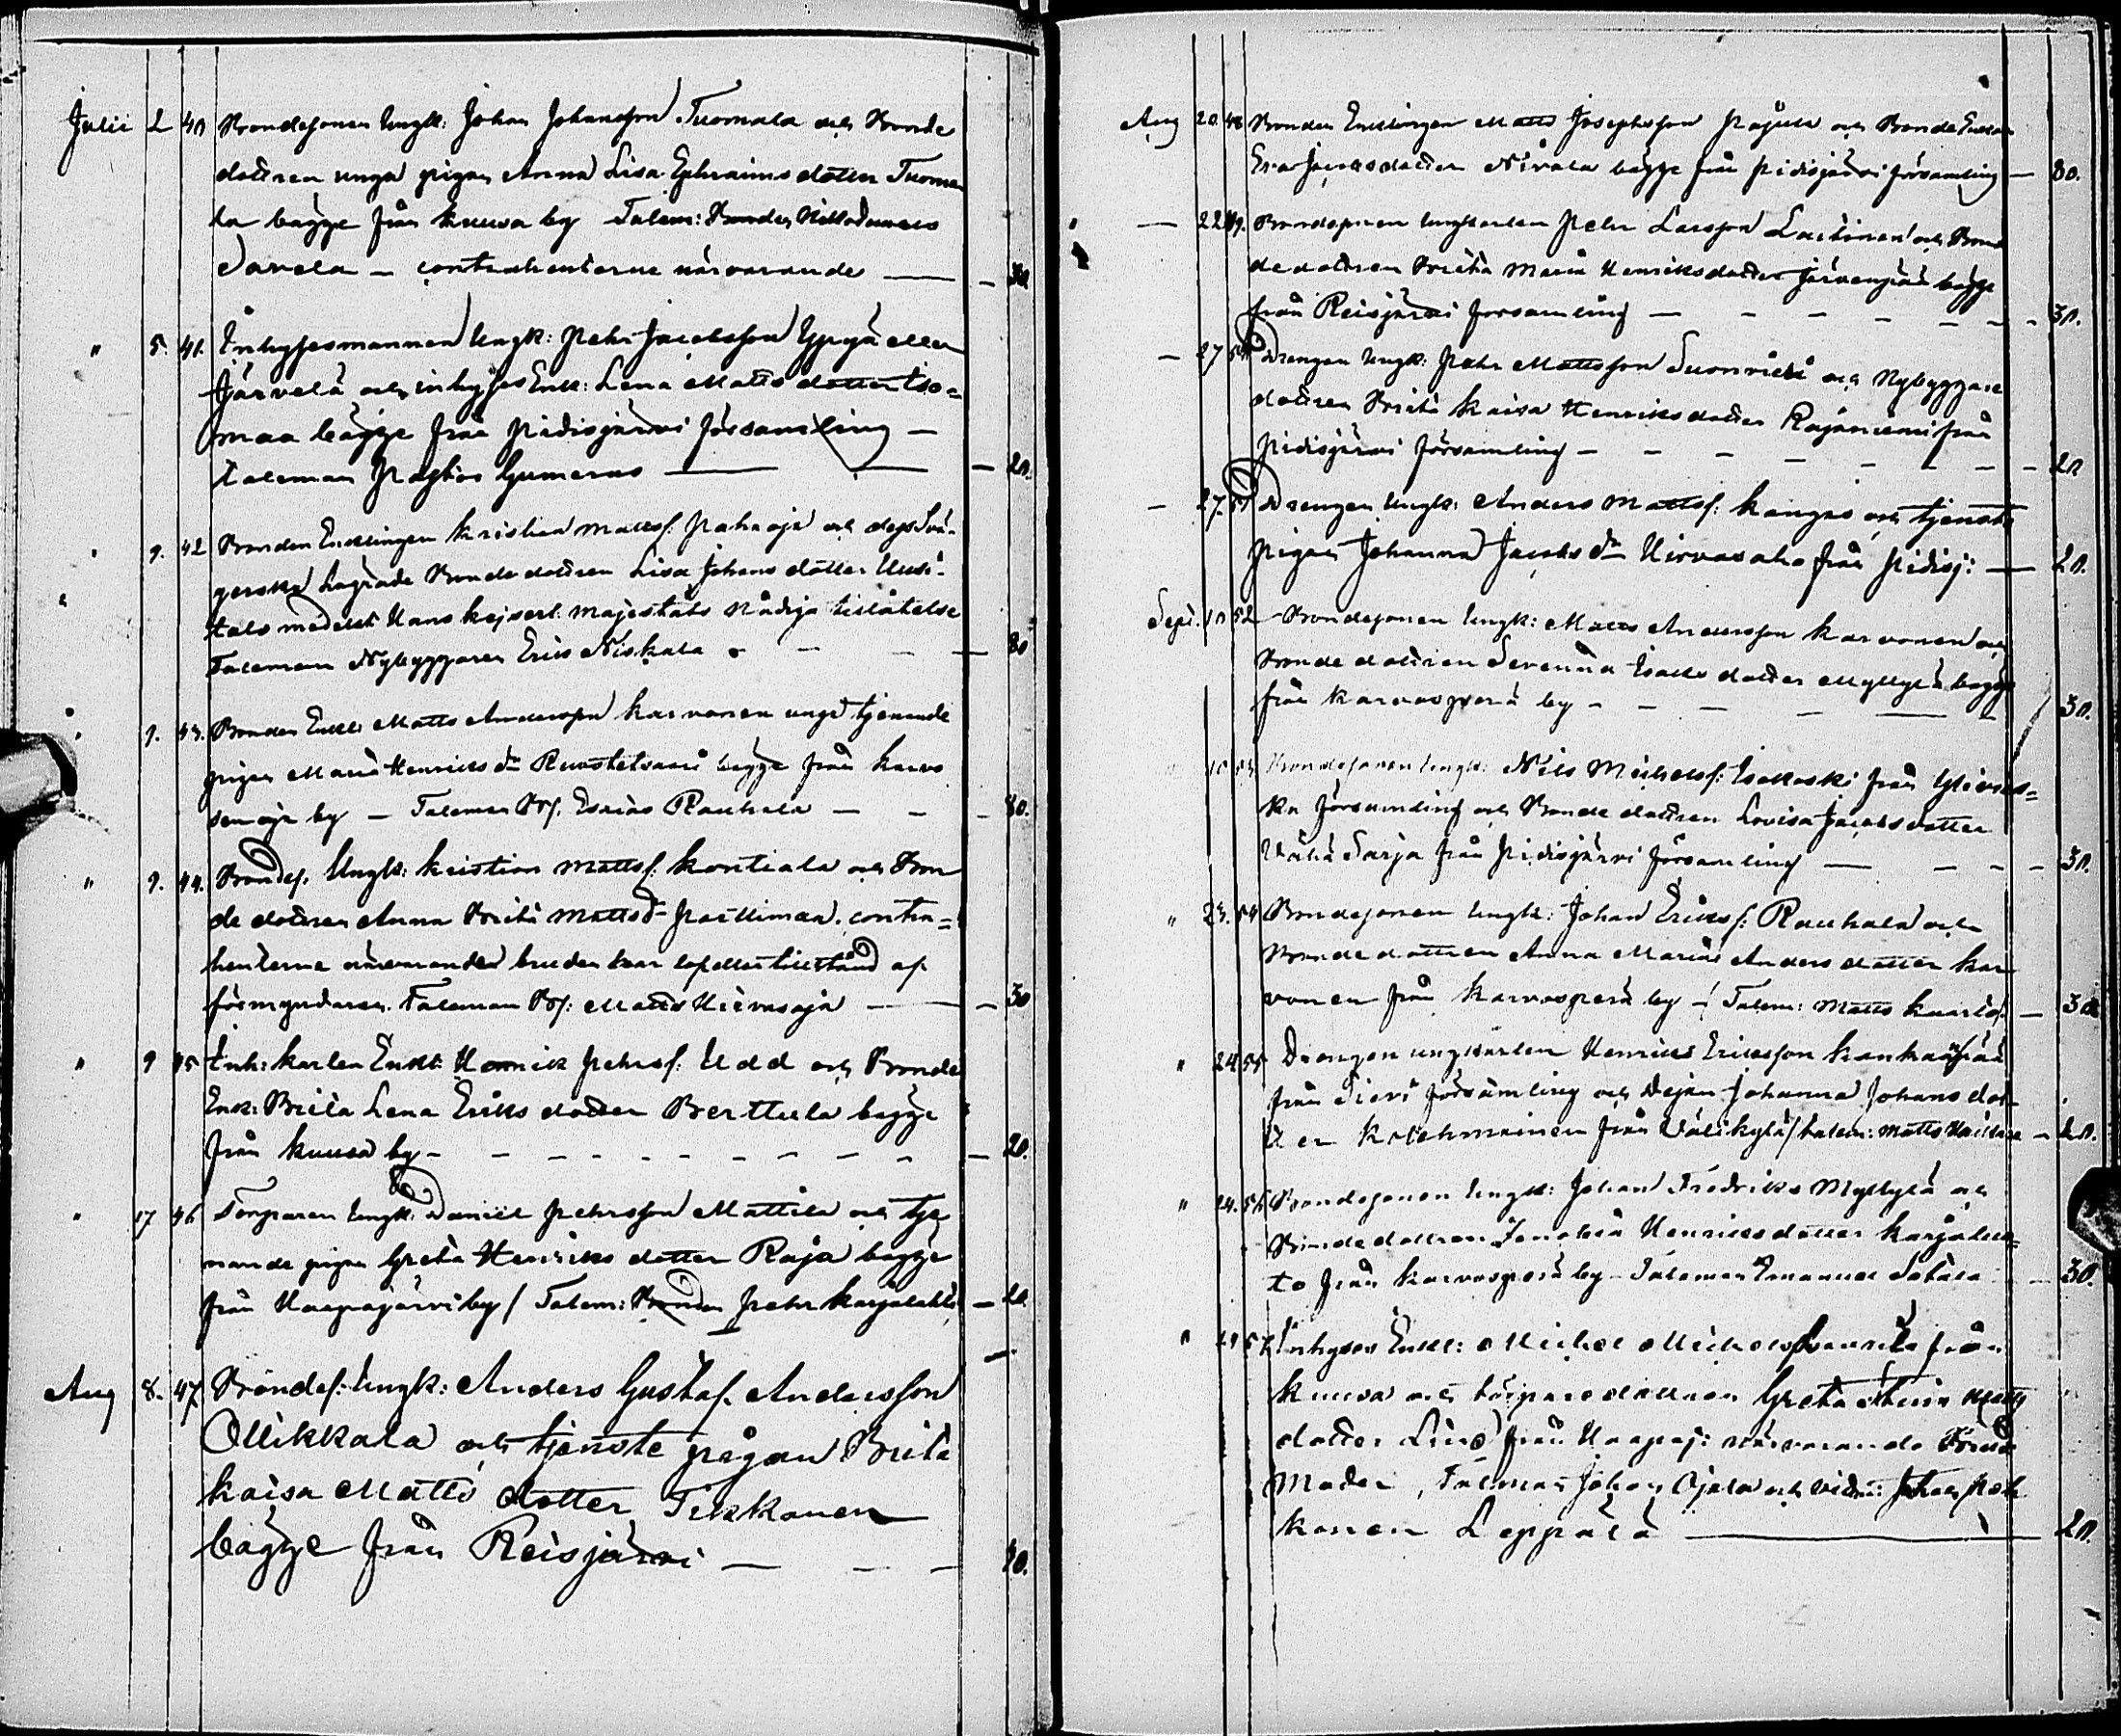 Julii 2 40 Bondesonen Ungk: Johan Johansson Tuomala och Bonde
dottren unga pigan Anna Lisa Ephraims dotter Tuoma
la bägge från Kuusa by Talem: Bonden
Savela – contrahenterne närvarande — – 30
" 5. 41. Inhysesmannen Ungk: Pehr Jacobsson Yppyä eller
Järvelä och inhyses Enk: Lena Matts dotter Iso=
maa bägge från Pidisjärvi församling –
taleman Pastor Gumerus — — – 20.
" 9. 42 Bonden Enklingen Kristian Matts: Pahaoja och dess Svä-
gerska Lagrade Bonde dottren Lisa Johans dotter Uusi-
talo medelst Hans Kejserl: Majestäts Nådiga tillåtelse
Taleman Nybyggaren Eric Niskala – – – 80
" 9. 43. Bonden Enkl: Matts Andersson Karvonen unga tjenande
pigan Maria Henriks dr Ruostetsaari bägge från Karvo
senoja by – Taleman Esaias Rauhala – – – 80.
" 9. 44. Bondes. Ungk: Kristian Matts: Kontiala och Bon
de dottren Anna Brita Matts d Paittimaa. contra=
henterne närvarande bruden har löftes tillstånd af
förmyndaren. Taleman Matts Hirvasoja — – 30
" 9 45 Inh: karlen Enkl: Henrik Pehrs: Udd och Bonde
Enk: Brita Lena Eriks dotter Berttula bägge
från Kuusa by – – – – – – – – 20.
" 17 46 Torparen Ungk: Daniel Pehrsson Mattila och tje
nande pigan Greta Henriks dotter Raja bägge
från Haapajärvi by / Talem: Bonden Pehr Karjalahti – 20
Aug 8. 47. Bondes: Ungk: Anders Gustaf. Andersson
Ollikkala och tjenste pigan Brita
Kaisa Matts dotter Tikkanen
bägge från Reisjärvi — — – 20.
Aug 20. 48 Bonden Enklingen Matts Josephsson Pajula och Bonde Enkan
Eva Jacobsdotter Nivala bägge från Pidisjärvi församling – 80.
— 22 49. Bondesonen Ungkarlen Pehr Larsson Laitinen och Bon
dedottren Brita Maria Henriksdotter Järvenpää bägge
från Reisjärvi församling — – – – – – – 30.
— 27 50 Drengen Ungk: Pehr Mattsson Suonvieri och Nybyggare
dottren Brita Kaisa Henriks dotter Rajaniemi från
Pidisjärvi församling – – – – – – – – 20
— 27. 51 Drengen Ungk: Anders Matts: Kangas och tjenste
pigan Johanna Jacobs dr Hirvasaho från Pidisj: — 20.
Sept. 10 52 Bondesonen Ungk: Matts Andersson Karvonen och
Bonde dottren Serenna Isaks dotter Myllylä bägge
från Karvosperä by – – – – — – 30.
" 10 53 Bondesonen Ungk: Nils Michels: Isokoski från Ylivies=
ka församling och Bonde dottren Lovisa Jacobs dotter
Vähä Sarja från Pidisjärvi församling — – – – 30.
" 23. 54 Bondesonen Ungk: Johan Eriks: Rauhala och
Bonde dottren Anna Maria Anders dotter Kar
vonen från Karvosperä by – / Talem: Matts – 30
" 24 55 Drengen ungkarlen Henrik Eriksson Kankaanpää
från Sievi församling och Dejan Johanna Johans dot-
ter Kolehmainen från Välikylä / talem: Matts – 20.
" 24. 56 Bondesonen Ungk: Johan Fredriks Myllylä och
Bonde dottren Henriks dotter Karjaluo=
to från Karvosperä by – Taleman Emanuel – 30.
" 24 57 Inhyses Enkl: Michel Michels från
Kuusa och torpare dottren Greta Stina Matts
dotter Lind från Haapaj: närvarande Brud
Moder, Talman Johan Ojala och vidn: Johan
konen Leppälä — 20.